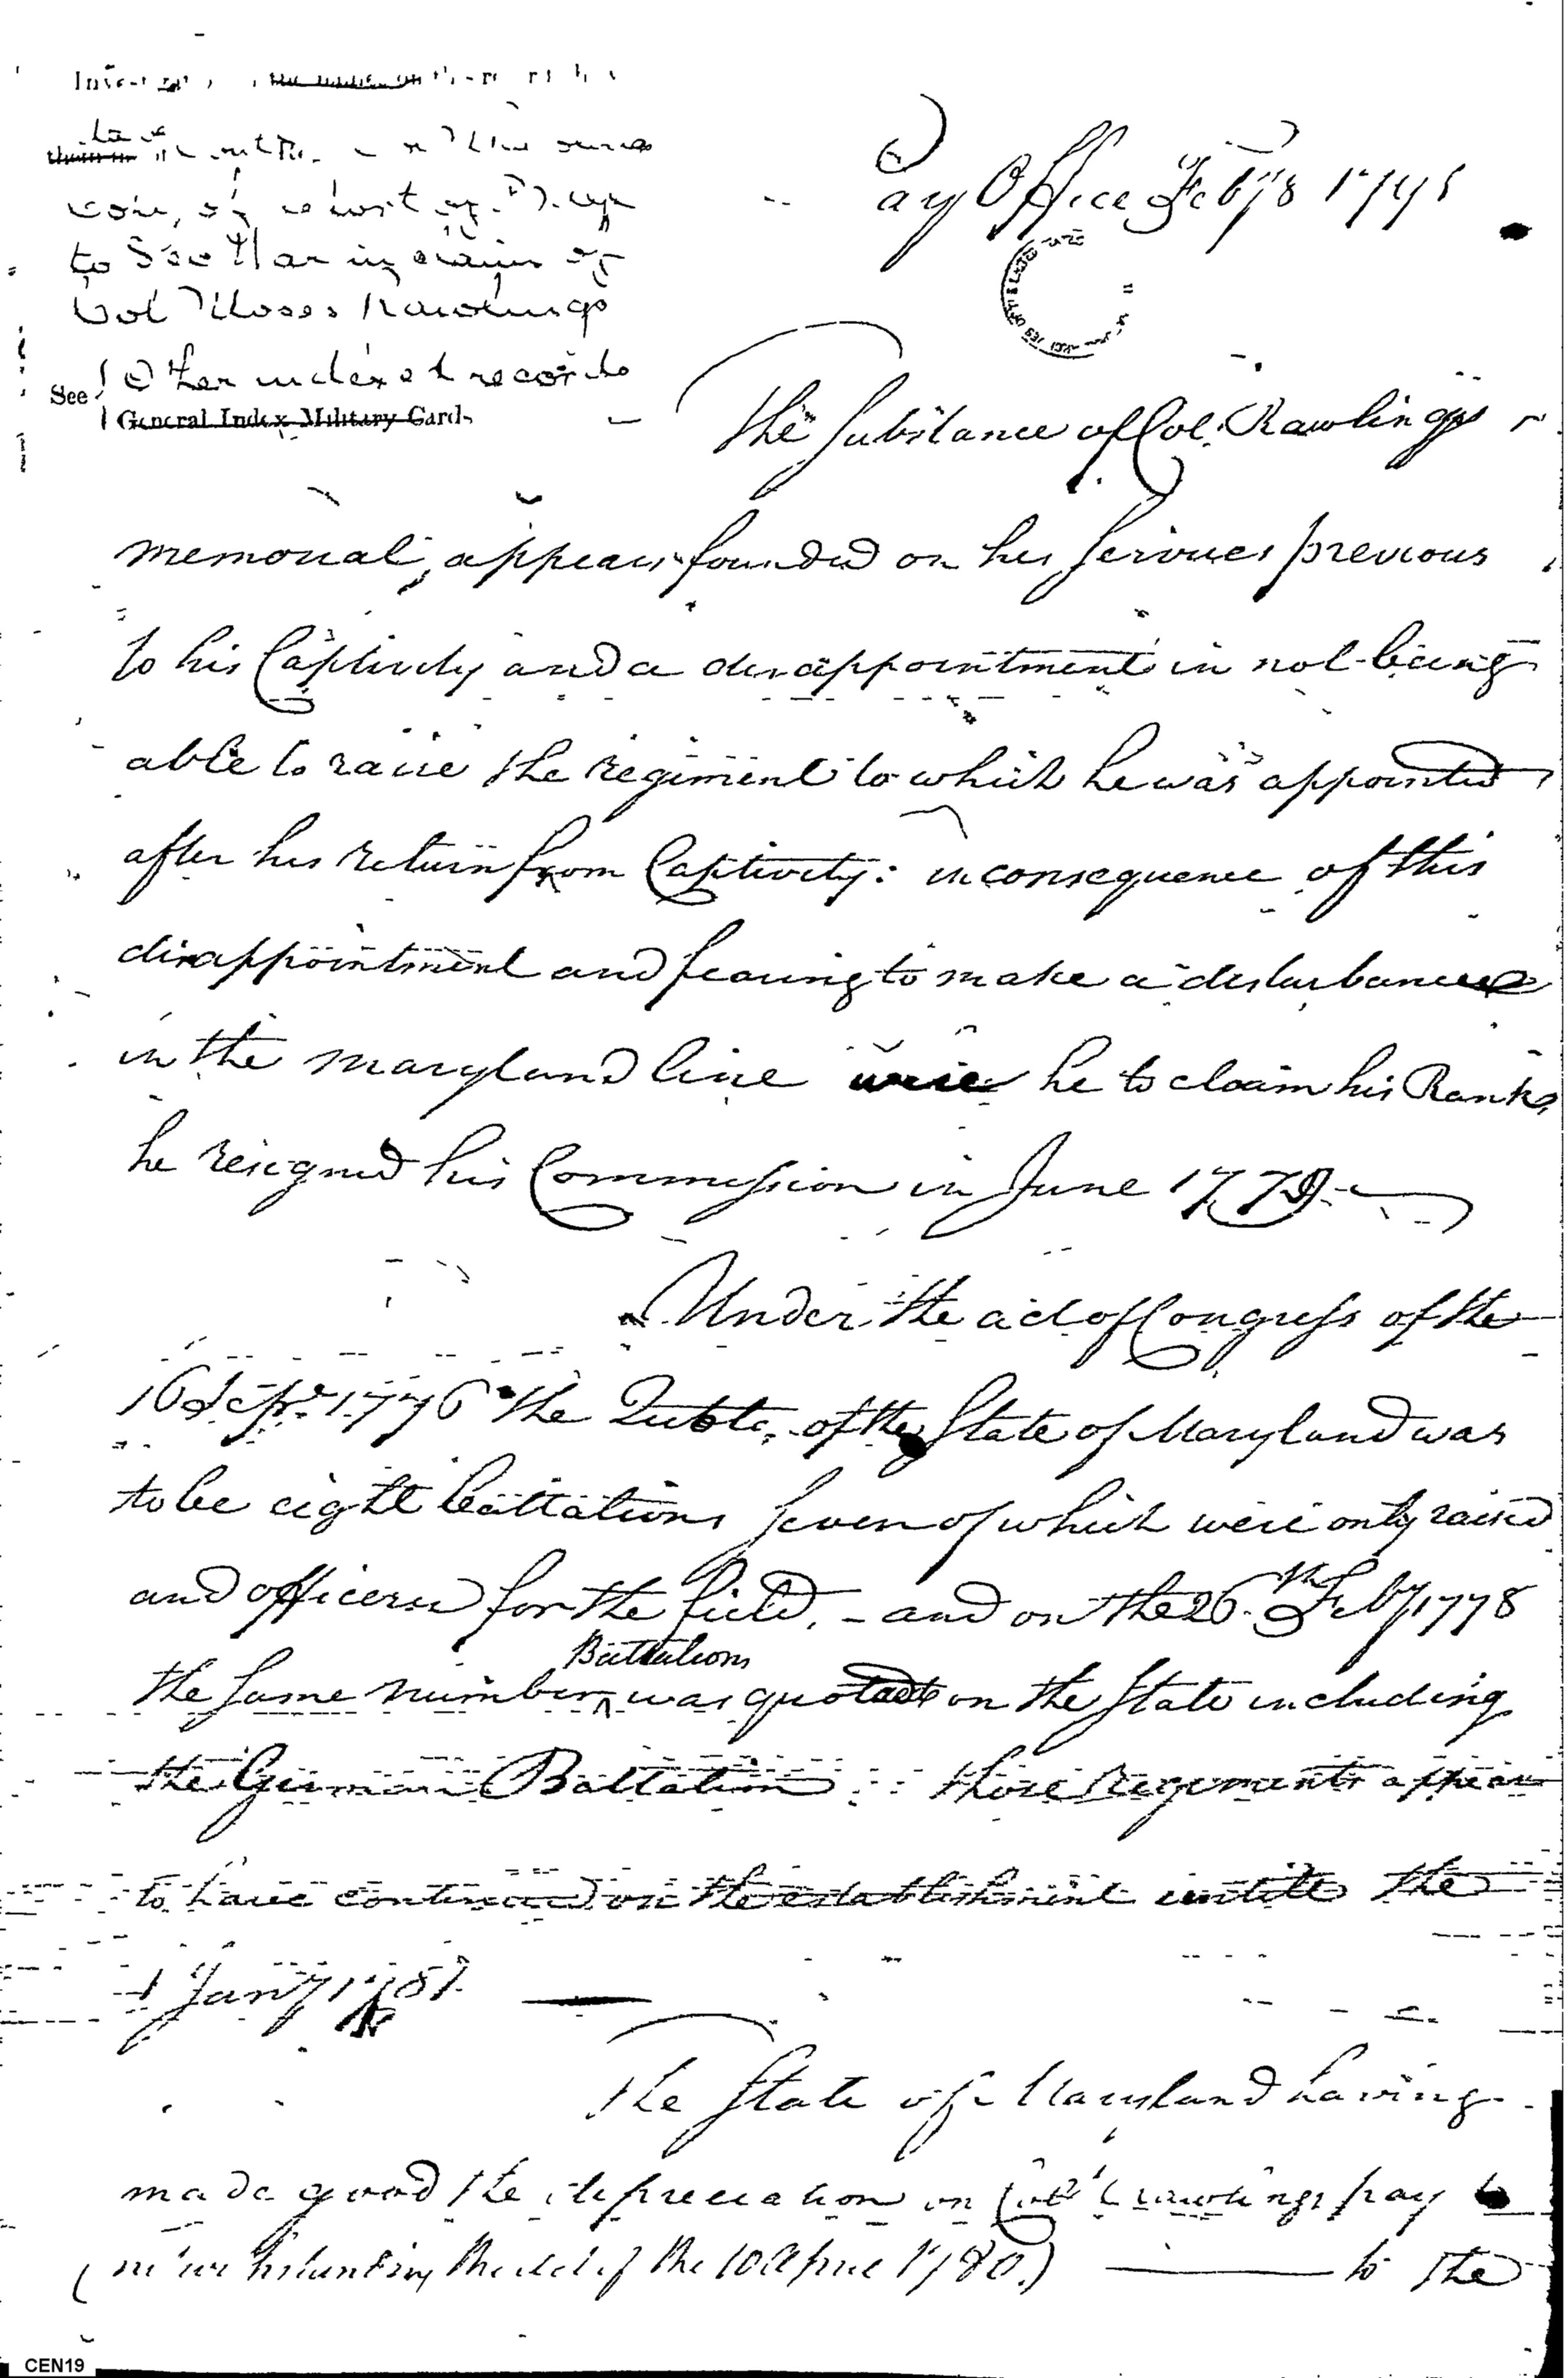 Pay Office Feby 8 179
to Scot
Col Moses Rawlings
See Other indexed records
General Index Military Card
The Substance of Col. Rawlings
memorial, appears founded on his Services previous
to his Captivity and a disappointment in not being
able to raise the regiment to which he was appointed
after his return from Captivity: in consequence of this
disappointment and fearing to make a disturbance
in the Maryland line were he to claim his Rank,
he resigned his Commission in June 1779
Under the act of Congress of the
16 Sepr. 1776 the Quota of the State of Maryland was
to be eight battalions Seven of which were only raised
and officered for the field, - and on the 26th Feby 1778
Battalions
the Same number ^ was quotaed on the State including
the German Battalion : those regiments appear
to have continued on the establishment untill the
1 Jany 1781
The State of Maryland having
made good the depreciation on Colo Rawlings pay
the act of the 10 April 1780.) to the
CEN19